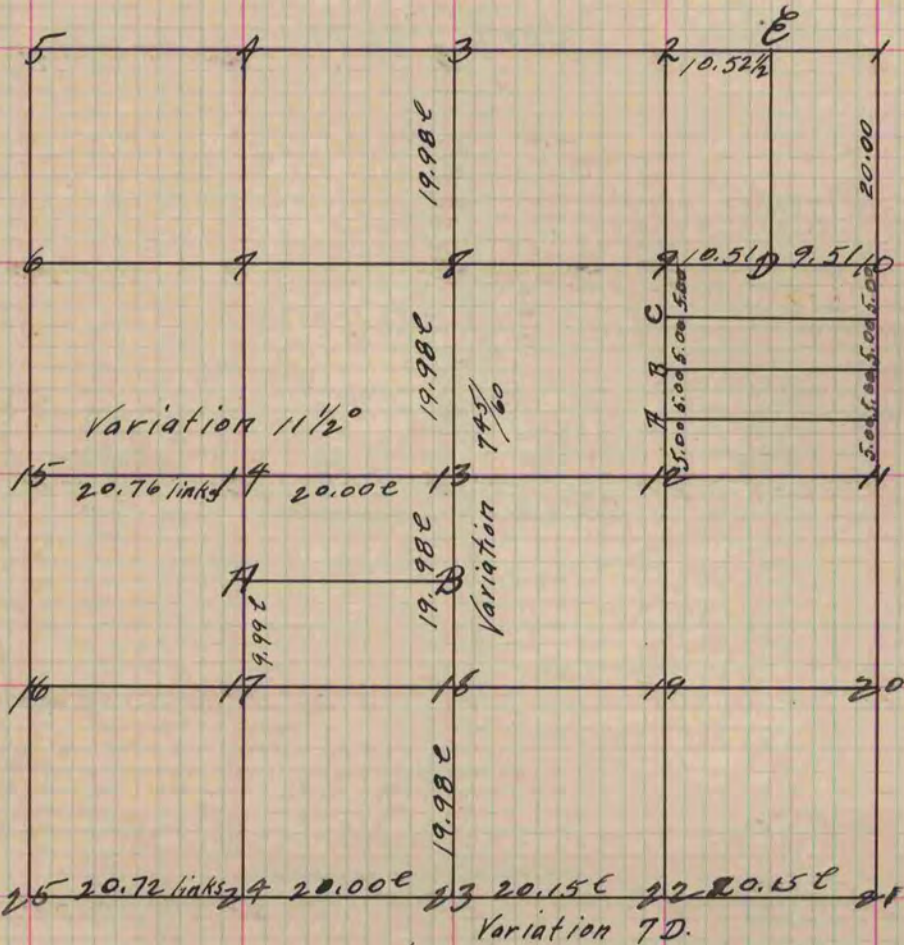 E
5 4 3 2 1
10.52½
19.98 c
20.00
6 7 8 9 10.51 D 9.51 10
C 5.00 5.00
B 5.00 5.00
A 5.00 5.00
5.00 5.00
19.98 c
7 45/60
Variation 11½°
15 14 13 12 11
20.76 links 20.00 c
A B
19.98 c
Variation
9.99 c
16 17 18 19 20
19.98 c
25 20.72 links 24 20.00 c 23 20.15 c 22 20.15 c 21
Variation 7 D.